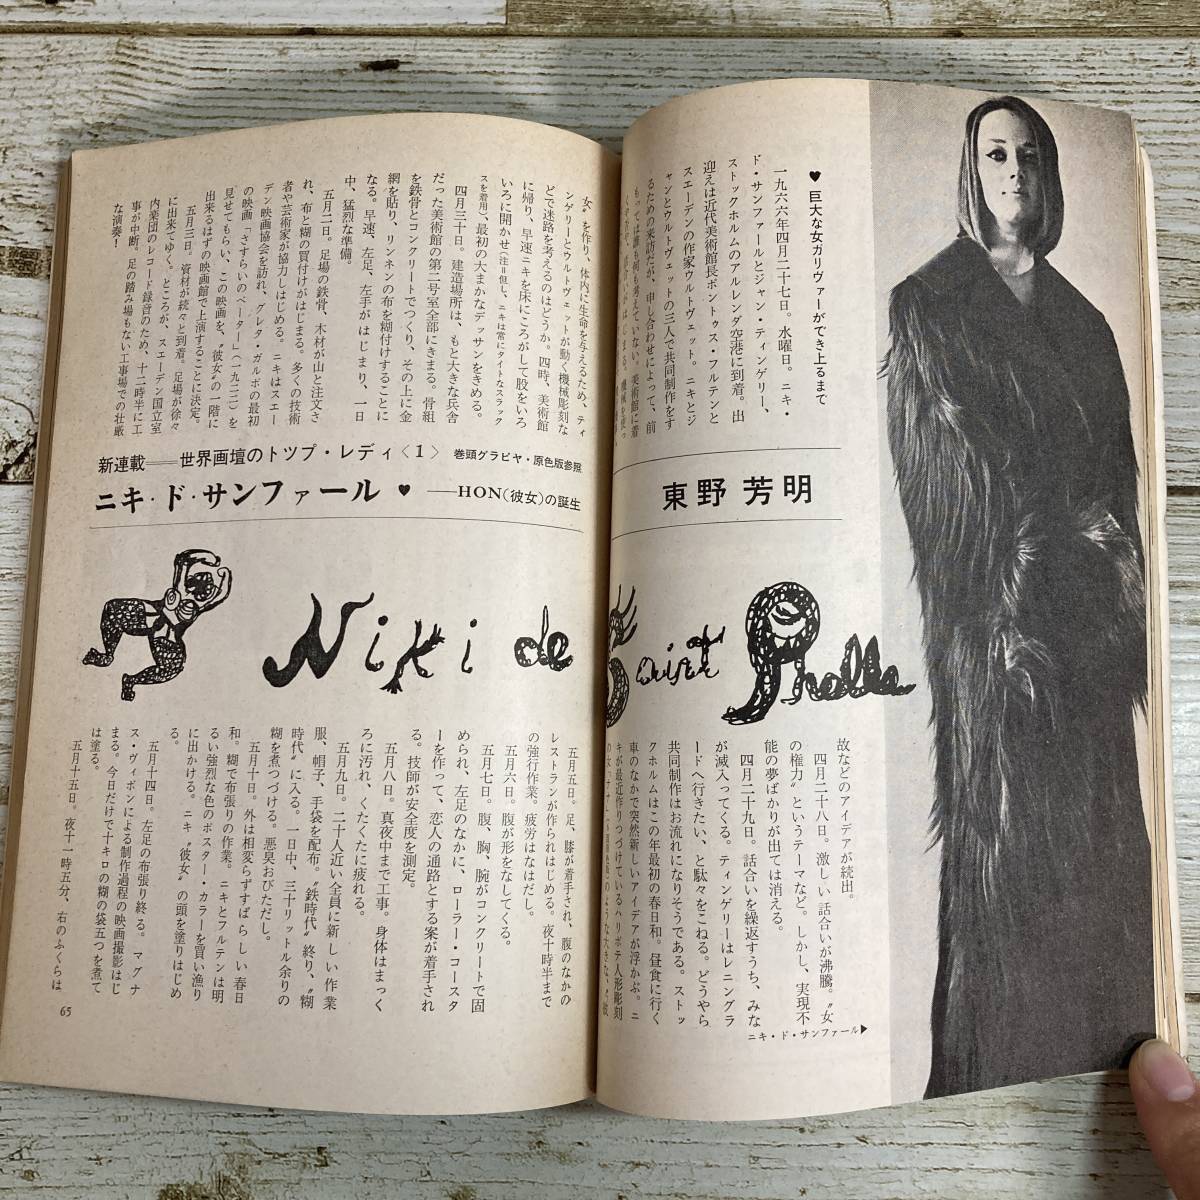 ♥ 巨大な女ガリヴァーができ上るまで
一九六六年四月二十七日。水曜日。ニキ・
ド・サンファールとジャン・ティンゲリー、
ストックホルムのアルレンダ空港に到着。出
迎えは近代美術館長ポントゥス・フルテンと
スエーデンの作家ウルトヴェット。ニキとジ
ャンとウルトヴェットの三人で共同制作をす
るための来訪だが、申し合わせによって、前
もっては誰も何も考えていない。美術館に着
東野 芳明
故などのアイデアが続出。
四月二十八日。激しい話合いが沸騰。〝女
の権力〟というテーマなど。しかし、実現不
能の夢ばかりが出ては消える。
四月二十九日。話合いを繰返すうち、みな
が滅入ってくる。ティンゲリーはレニングラ
ードへ行きたい、と駄々をこねる。どうやら
共同制作はお流れになりそうである。ストッ
クホルムはこの年最初の春日和。昼食に行く
車のなかで突然新しいアイデアが浮かぶ。ニ
キが最近作りつづけているハリボテ人形彫刻
ニキ・ド・サンファール▶
女〟を作り、体内に生命を与えるため、ティ
ンゲリーとウルトヴェットが動く機械彫刻な
どで迷路を考えるのはどうか。四時、美術館
に帰り、早速ニキを床にころがして股をいろ
いろに開かせ(注=但し、ニキは常にタイトなスラック
スを着用)、最初の大まかなデッサンをきめる。
四月三十日。建造場所は、もと大きな兵舎
だった美術館の第二号室全部にきまる。骨組
を鉄骨とコンクリートでつくり、その上に金
網を貼り、リンネンの布を糊付けすることに
なる。早速、左足、左手がはじまり、一日
中、猛烈な準備。
五月二日。足場の鉄骨、木材が山と注文さ
れ、布と糊の買付けがはじまる。多くの技術
者や芸術家が協力しはじめる。ニキはスエー
デン映画協会を訪れ、グレタ・ガルボの最初
の映画「さすらいのペーター」(一九二二)を
見せてもらい、この映画を、〝彼女〟の一階に
出来るはずの映画館で上演することに決定。
五月三日。資材が続々と到着。足場が徐々
に出来てゆく。ところが、スエーデン国立室
内楽団のレコード録音のため、十二時半に工
事が中断。足の踏み場もない工事場での壮厳
な演奏!
新連載——世界画壇のトップ・レディ〈1〉 巻頭グラビヤ・原色版参照
ニキ・ド・サンファール ♥ ——HON(彼女)の誕生
Niki de Saint Phalle
五月五日。足、膝が着手され、腹のなかの
レストランが作られはじめる。夜十時半まで
の強行作業。疲労はなはだし。
五月六日。腹が形をなしてくる。
五月七日。腹、胸、腕がコンクリートで固
められ、左足のなかに、ローラー・コースタ
ーを作って、恋人の通路とする案が着手され
る。技師が安全度を測定。
五月八日。真夜中まで工事。身体はまっく
ろに汚れ、くたくたに疲れる。
五月九日。二十人近い全員に新しい作業
服、帽子、手袋を配布。〝鉄時代〟終り、〝糊
時代〟に入る。一日中、三十リットル余りの
糊を煮つづける。悪臭おびただし。
五月十日。外は相変らずすばらしい春日
和。糊で布張りの作業。ニキとフルテンは明
るい強烈な色のポスター・カラーを買い漁り
に出かける。ニキ〝彼女〟の頭を塗りはじめ
る。
五月十四日。左足の布張り終る。マグナ
ス・ヴィボンによる制作過程の映画撮影はじ
まる。今日だけで十キロの糊の袋五つを煮て
は塗る。
五月十五日。夜十一時五分、右のふくらは
65